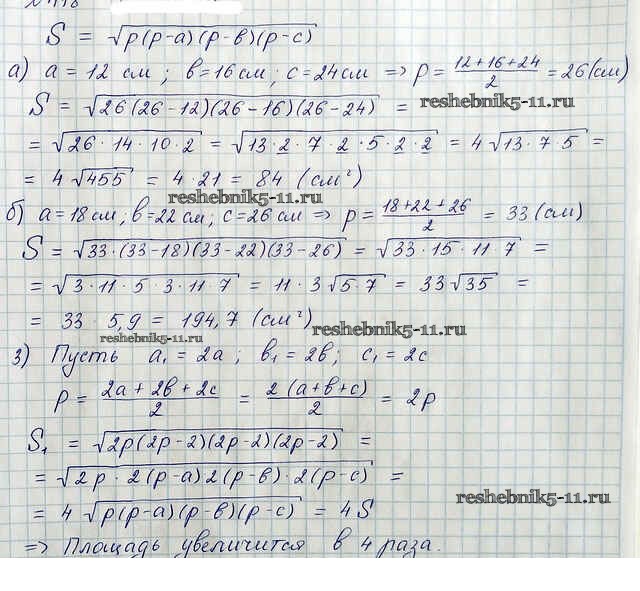 S = √p(p-a)(p-в)(p-c)
а) a = 12 см ; в=16см ; c=24см ⇒ p = (12+16+24)/2 = 26(см)
S = √26(26-12)(26-16)(26-24) =
reshebnik5-11.ru
= √26·14·10·2 = √13·2·7·2·5·2·2 = 4√13·7·5 =
= 4√455 = 4·21 = 84 (см²)
reshebnik5-11.ru
б) a=18см ; в=22см ; c=26см ⇒ p = (18+22+26)/2 = 33 (см)
S = √33·(33-18)(33-22)(33-26) = √33·15·11·7 =
= √3·11·5·3·11·7 = 11·3√5·7 = 33√35 =
= 33·5,9 = 194,7 (см²)
reshebnik5-11.ru
reshebnik5-11.ru
3) Пусть a₁ = 2a ; в₁ = 2в ; c₁ = 2c
p = (2a+2в+2c)/2 = 2(a+в+c)/2 = 2p
S₁ = √2p(2p-2)(2p-2)(2p-2) =
= √2p·2(p-a)2(p-в)·2(p-c) =
= 4√p(p-a)(p-в)(p-c) = 4S
reshebnik5-11.ru
⇒ Площадь увеличится в 4 раза.